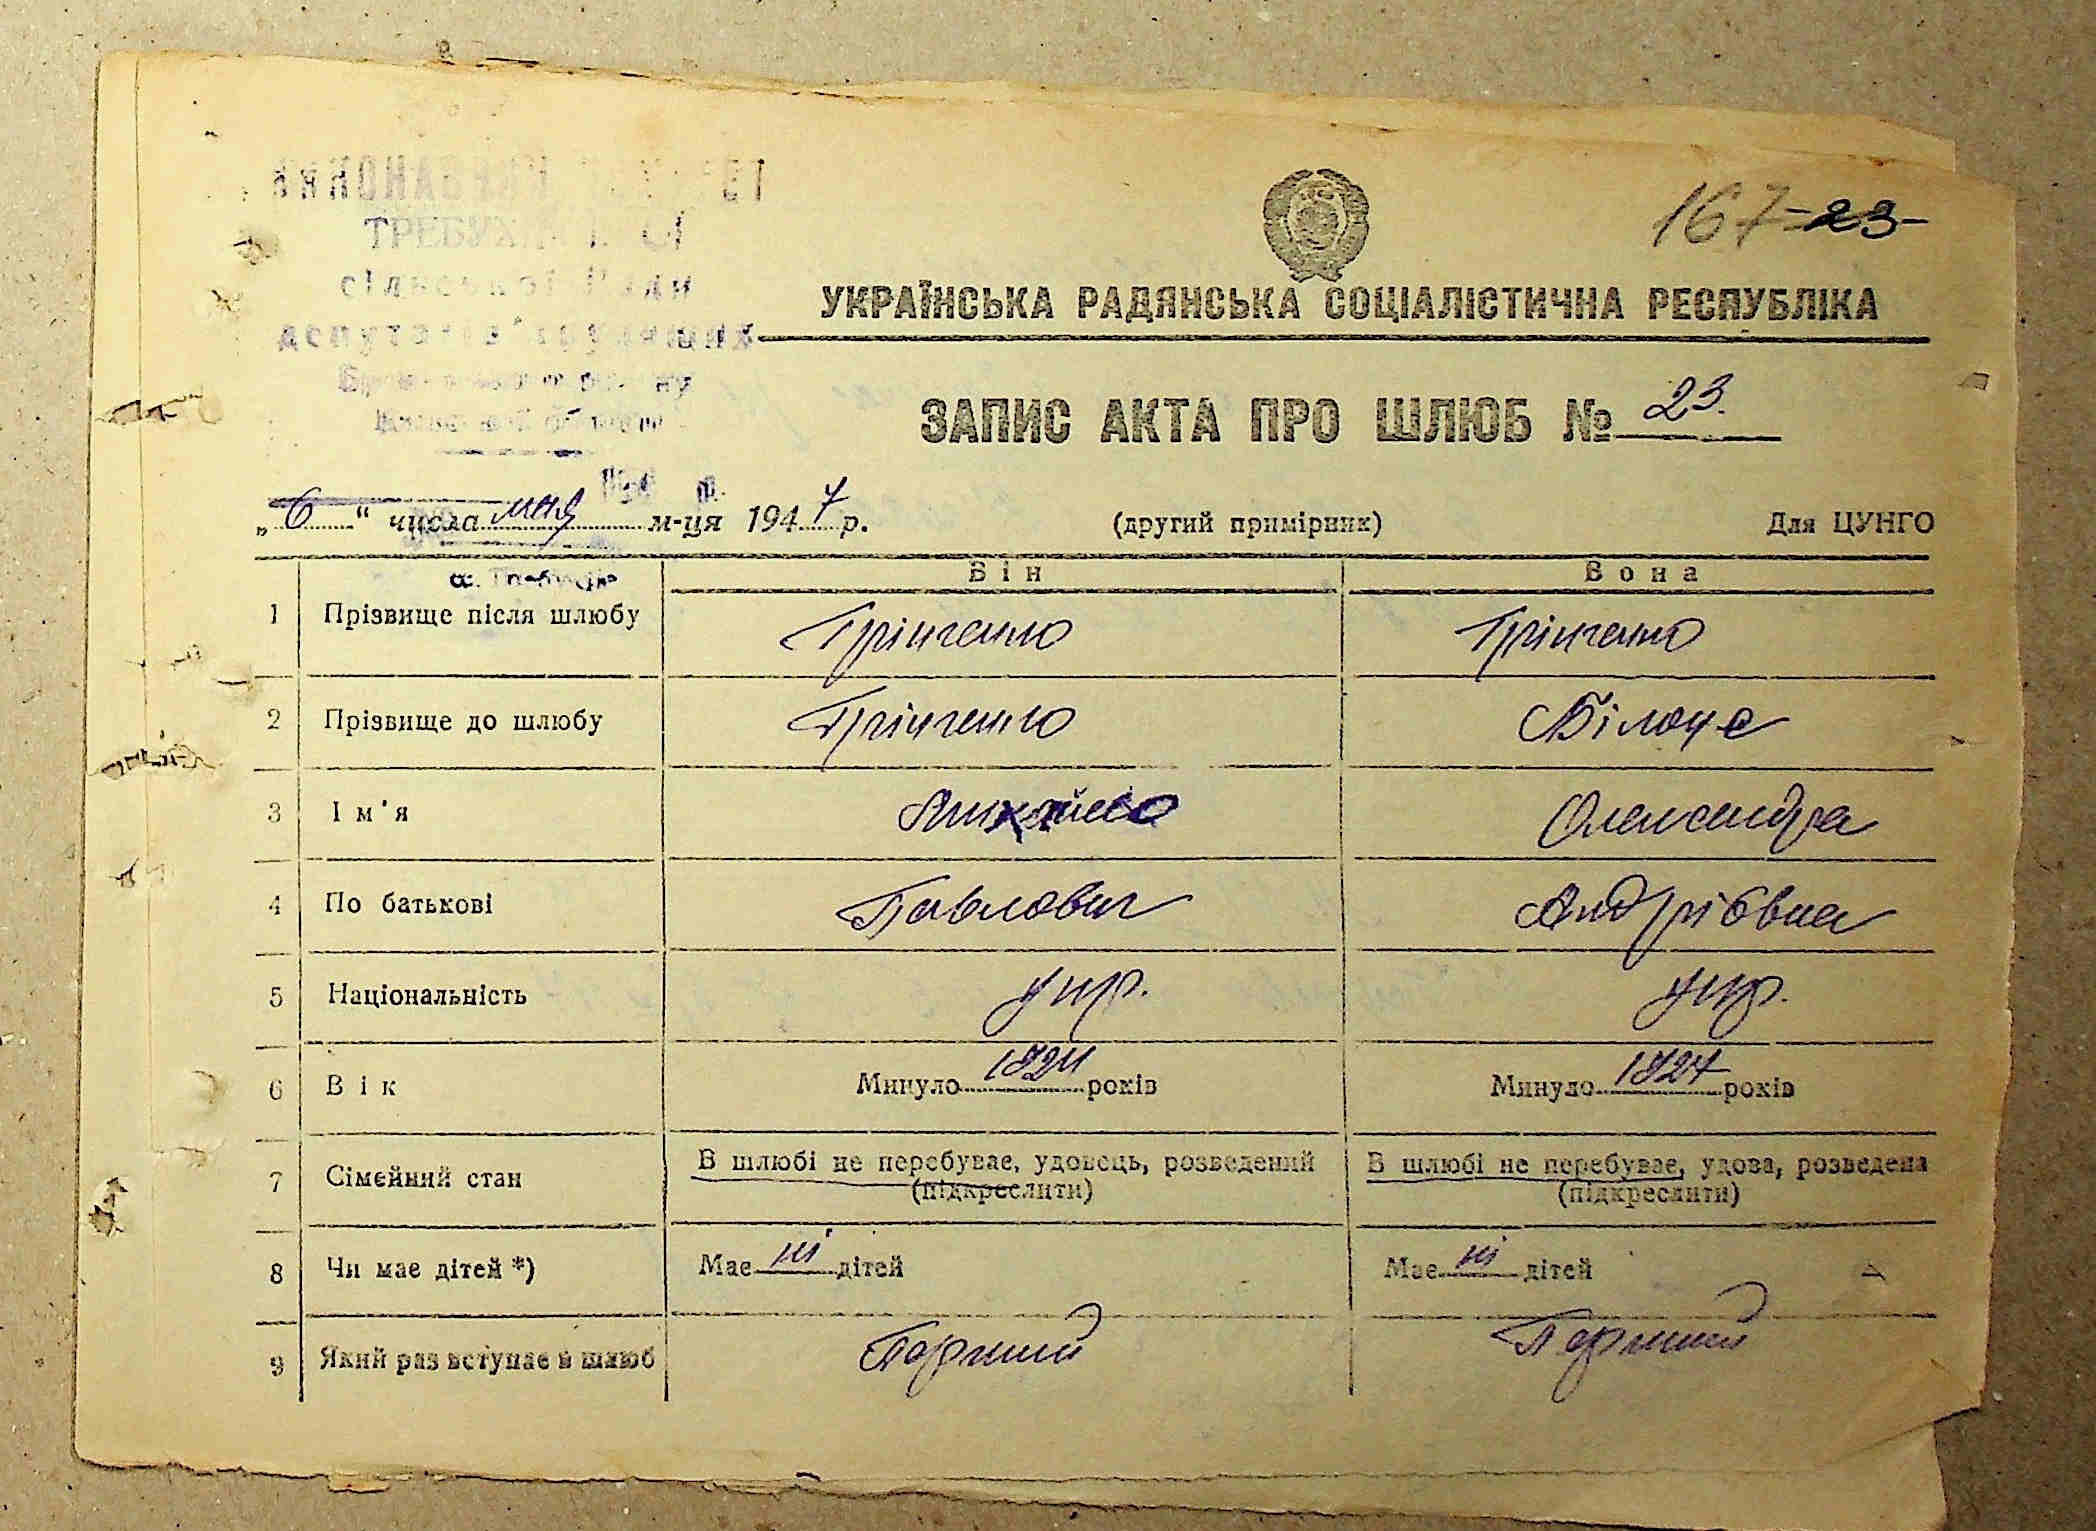 167-23-
ТРЕБУХ
сільської Ради
депутатів трудящих
УКРАЇНСЬКА РАДЯНСЬКА СОЦІАЛІСТИЧНА РЕСПУБЛІКА
ЗАПИС АКТА ПРО ШЛЮБ № 23.
„6“ числа мая м-ця 1947 р. (другий примірник) Для ЦУНГО
Він Вона
1 Прізвище після шлюбу Грінченко Грінченко
2 Прізвище до шлюбу Грінченко Білоче
3 Ім'я Михайло Олександра
4 По батькові Павлович Андріівна
5 Національність укр. укр.
6 Вік Минуло 1924 років Минуло 1924 років
7 Сімейний стан В шлюбі не перебуває, удовець, розведений В шлюбі не перебуває, удова, розведена
(підкреслити) (підкреслити)
8 Чи має дітей *) Має ні дітей Має ні дітей
9 Який раз вступає в шлюб Перший Перший